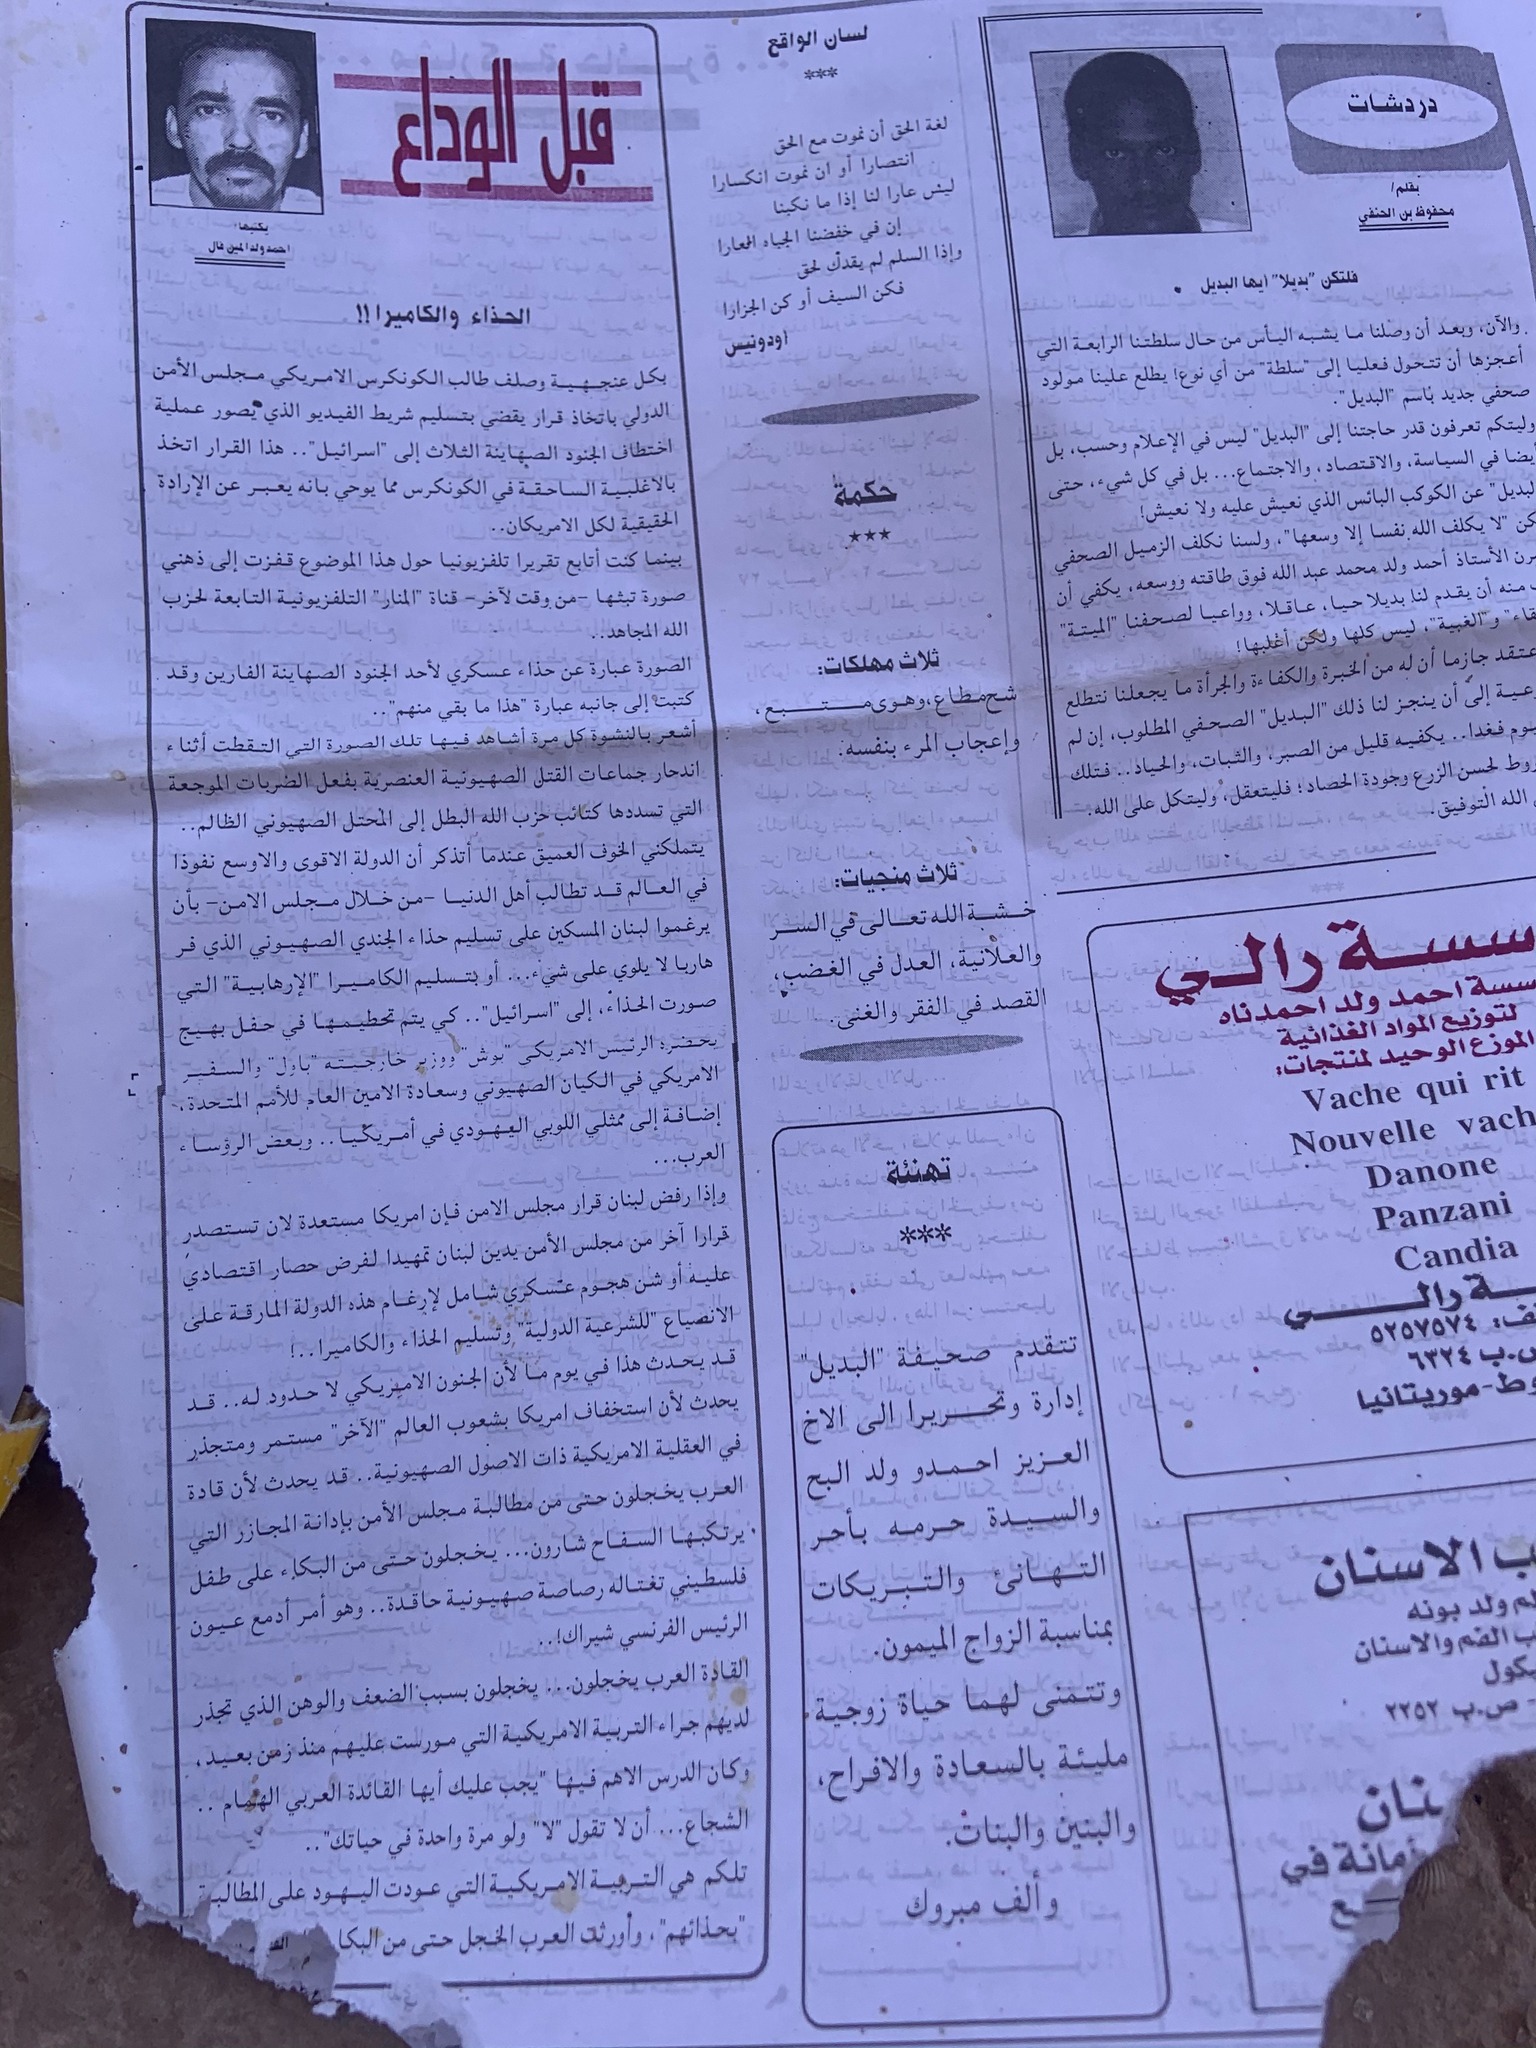 دردشات
بقلم/
محفوظ بن الحنفي
فلتكن "بديلا" أيها البديل
والآن، وبعد أن وصلنا ما يشبه اليأس من حال سلطتنا الرابعة التي
أعجزها أن تتحول فعليا إلى "سلطة" من أي نوع! يطلع علينا مولود
صحفي جديد باسم "البديل".
وليتكم تعرفون قدر حاجتنا إلى "البديل" ليس في الإعلام وحسب، بل
أيضا في السياسة، والاقتصاد، والاجتماع... بل في كل شيء، حتى
البديل" عن الكوكب البائس الذي نعيش عليه ولا نعيش!
"لا يكلف الله نفسا إلا وسعها"، ولسنا نكلف الزميل الصحفي
الأستاذ أحمد ولد محمد عبد الله فوق طاقته ووسعه، يكفي أن
منه أن يقدم لنا بديلا حيا، عاقلا، وواعيا لصحفنا "الميتة"
و"الغبية"، ليس كلها ولكن أغلبها!
جازما أن له من الخبرة والكفاءة والجرأة ما يجعلنا نتطلع
إلى أن ينجز لنا ذلك "البديل" الصحفي المطلوب، إن لم
فغدا.. يكفيه قليل من الصبر، والثبات، والحياد.. فتلك
لحسن الزرع وجودة الحصاد؛ فليتعقل، وليتكل على الله.
الله التوفيق.
لسان الواقع
***
لغة الحق أن نموت مع الحق
انتصارا أو ان نموت انكسارا
ليس عارا لنا إذا ما نكبنا
إن في خفضنا الجباه المعارا
وإذا السلم لم يقدك لحق
فكن السيف أو كن الجزارا
أودونيس
حكمة
***
ثلاث مهلكات:
شح مطاع، وهوى متبع،
وإعجاب المرء بنفسه.
ثلاث منجيات:
خشية الله تعالى في السر
والعلانية، العدل في الغضب،
القصد في الفقر والغنى.
تهنئة
***
تتقدم صحيفة "البديل"
إدارة وتحريرا الى الاخ
العزيز احمدو ولد البح
والسيدة حرمه بأحر
التهانئ والتبريكات
بمناسبة الزواج الميمون.
وتتمنى لهما حياة زوجية
مليئة بالسعادة والافراح،
والبنين والبنات.
وألف مبروك
قبل الوداع
يكتبها:
احمد ولد المين فال
الحذاء والكاميرا !!
بكل عنجهية وصلف طالب الكونكرس الامريكي مجلس الأمن
الدولي باتخاذ قرار يقضي بتسليم شريط الفيديو الذي يصور عملية
اختطاف الجنود الصهاينة الثلاث إلى "اسرائيل".. هذا القرار اتخذ
بالاغلبية الساحقة في الكونكرس مما يوحي بانه يعبر عن الإرادة
الحقيقية لكل الامريكان..
بينما كنت أتابع تقريرا تلفزيونيا حول هذا الموضوع قفزت إلى ذهني
صورة تبثها -من وقت لآخر- قناة "المنار" التلفزيونية التابعة لحزب
الله المجاهد..
الصورة عبارة عن حذاء عسكري لأحد الجنود الصهاينة الفارين وقد
كتبت إلى جانبه عبارة "هذا ما بقي منهم"..
أشعر بالنشوة كل مرة أشاهد فيها تلك الصورة التي التقطت أثناء
اندحار جماعات القتل الصهيونية العنصرية بفعل الضربات الموجعة
التي تسددها كتائب حزب الله البطل إلى المحتل الصهيوني الظالم..
يتملكني الخوف العميق عندما أتذكر أن الدولة الاقوى والاوسع نفوذا
في العالم قد تطالب أهل الدنيا -من خلال مجلس الامن- بأن
يرغموا لبنان المسكين على تسليم حذاء الجندي الصهيوني الذي فر
هاربا لا يلوي على شيء... أو بتسليم الكاميرا "الإرهابية" التي
صورت الحذاء، إلى "اسرائيل".. كي يتم تحطيمها في حفل بهيج
يحضره الرئيس الامريكي "بوش" ووزير خارجيته "باول" والسفير
الامريكي في الكيان الصهيوني وسعادة الامين العام للأمم المتحدة،
إضافة إلى ممثلي اللوبي اليهودي في أمريكيا.. وبعض الرؤساء
العرب...
وإذا رفض لبنان قرار مجلس الامن فإن امريكا مستعدة لان تستصدر
قرارا آخر من مجلس الأمن يدين لبنان تمهيدا لفرض حصار اقتصادي
عليه أو شن هجوم عسكري شامل لإرغام هذه الدولة المارقة على
الانصياع "للشرعية الدولية" وتسليم الحذاء والكاميرا..!
قد يحدث هذا في يوم ما لأن الجنون الامريكي لا حدود له.. قد
يحدث لأن استخفاف امريكا بشعوب العالم "الآخر" مستمر ومتجذر
في العقلية الامريكية ذات الاصول الصهيونية.. قد يحدث لأن قادة
العرب يخجلون حتى من مطالبة مجلس الأمن بإدانة المجازر التي
يرتكبها السفاح شارون... يخجلون حتى من البكاء على طفل
فلسطيني تغتاله رصاصة صهيونية حاقدة.. وهو أمر أدمع عيون
الرئيس الفرنسي شيراك!..
القادة العرب يخجلون... يخجلون بسبب الضعف والوهن الذي تجذر
لديهم جراء التربية الامريكية التي مورست عليهم منذ زمن بعيد،
وكان الدرس الاهم فيها "يجب عليك أيها القائدة العربي الهمام ..
الشجاع... أن لا تقول "لا" ولو مرة واحدة في حياتك"..
تلكم هي التربية الامريكية التي عودت اليهود على المطالبة
"بحذائهم"، وأورثت العرب الخجل حتى من
رالي
احمد ولد احمدناه
لتوزيع المواد الغذائية
الموزع الوحيد لمنتجات:
Vache qui rit
Nouvelle vach
Danone
Panzani
Candia
رالي
٥٢٥٧٥٧٤
ص.ب ٦٣٢٤
موريتانيا
الاسنان
ولد بونه
الفم والاسنان
ص.ب ٢٢٥٢
في